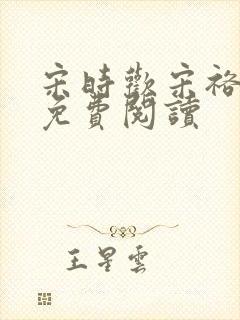 宋時歡宋裕
免費閱讀
王星雲